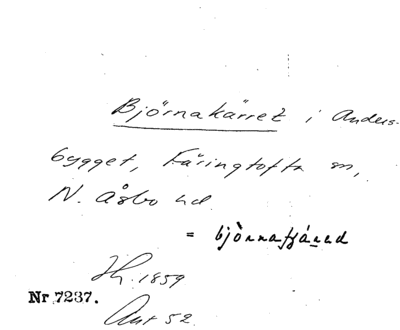 Björnakärret i Anders-
bygget, Färingtofta sn,
N. Åsbo hd
= bjö̀rnafjáred
1859
Nr 7237.
52